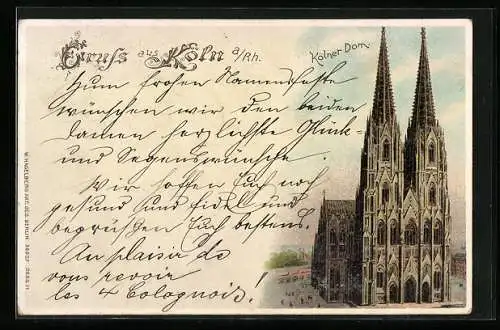 Gruss aus Köln a/Rh.
Kölner Dom
Zum frohen Namensfeste
wünschen wir den beiden
Damen herzlichste Glück-
und Segenswünsche.
Wir hoffen Euch noch
gesund und fidel und
begrüßen Euch bestens.
Au plaisir de
vous revoir
les 4 Colognois!
W. HAGELBERG